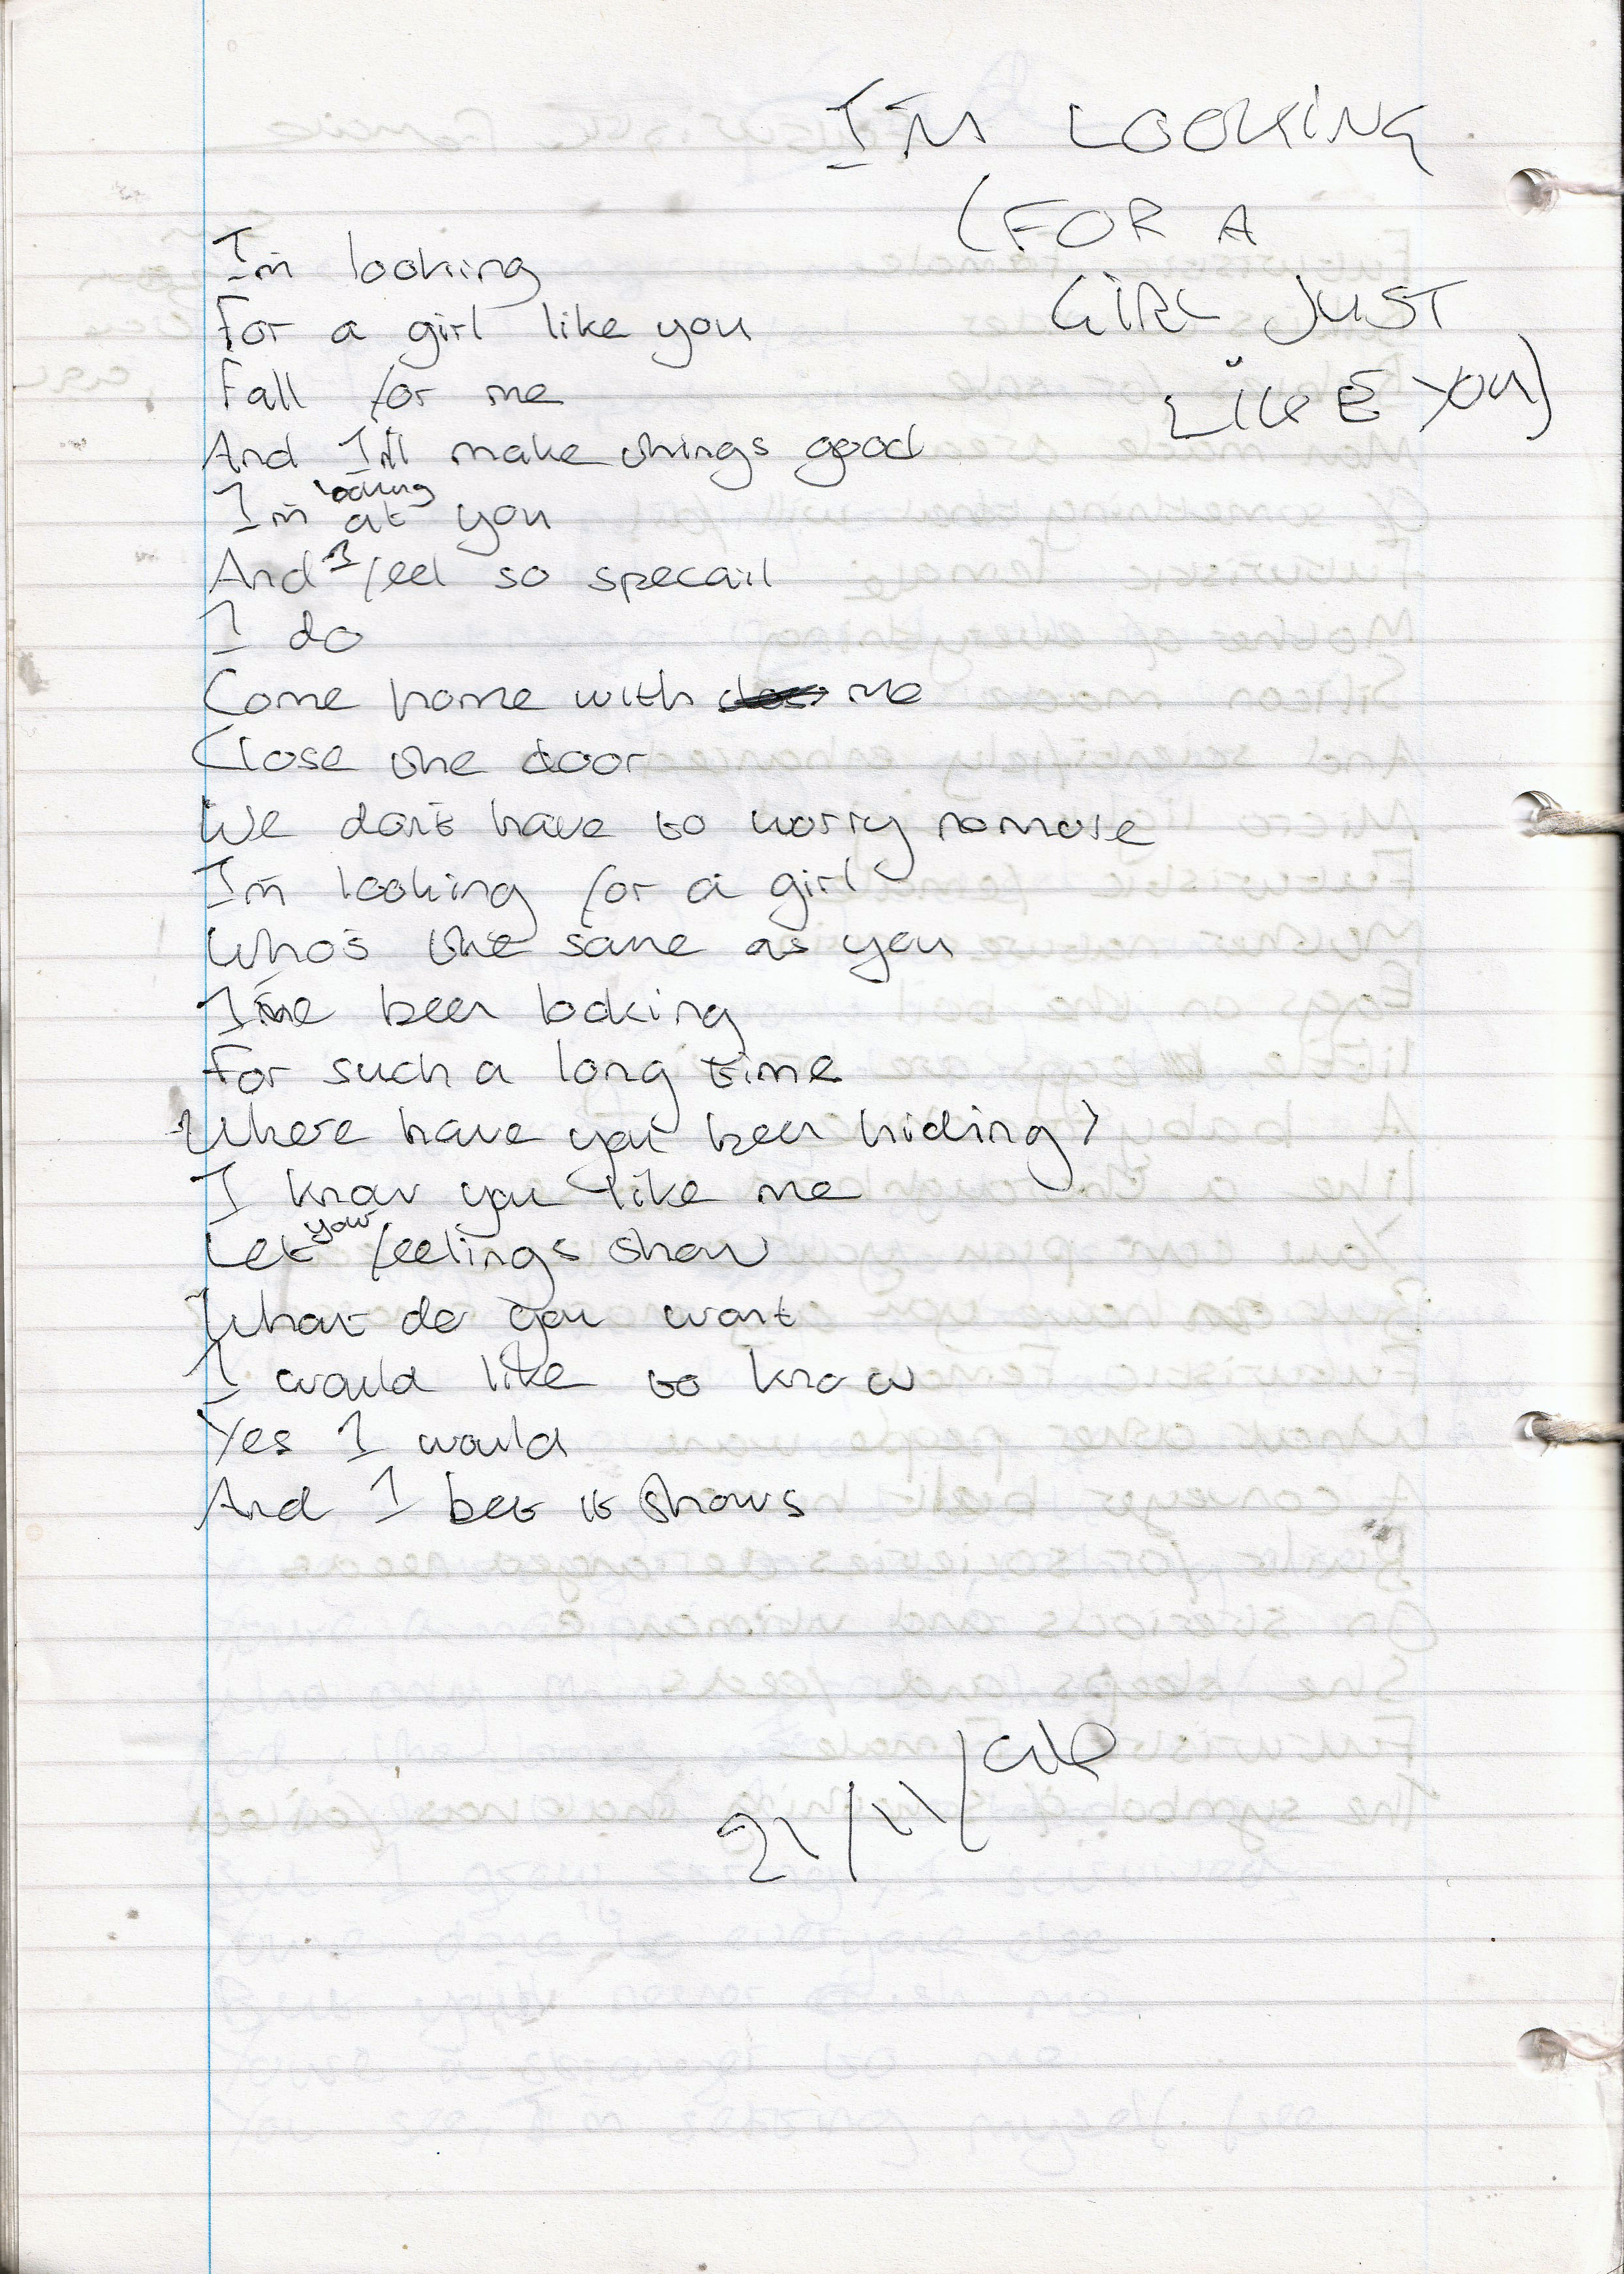 I'M LOOKING
(FOR A
GIRL JUST
LIKE YOU)
I'm looking
For a girl like you
Fall for me
And I'll make things good
I'm looking at you
And I feel so specail
I do
Come home with me
Close the door
We don't have to worry nomore
I'm looking for a girl
Who's the same as you
I've been looking
For such a long time
Where have you been hiding?
I know you like me
Let your feelings show
What do you want
I would like to know
Yes I would
And I bet it shows
21/11/